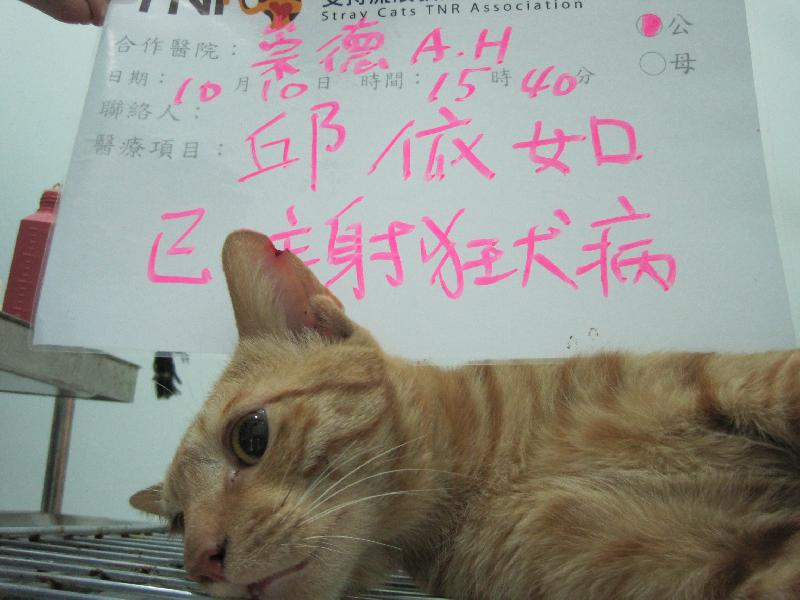 Stray Cats TNR Association
合作醫院： 崇德 A.H 公
日期： 10 月 10 日 時間： 15 時 40 分 母
聯絡人：
醫療項目： 邱依如
已注射狂犬病